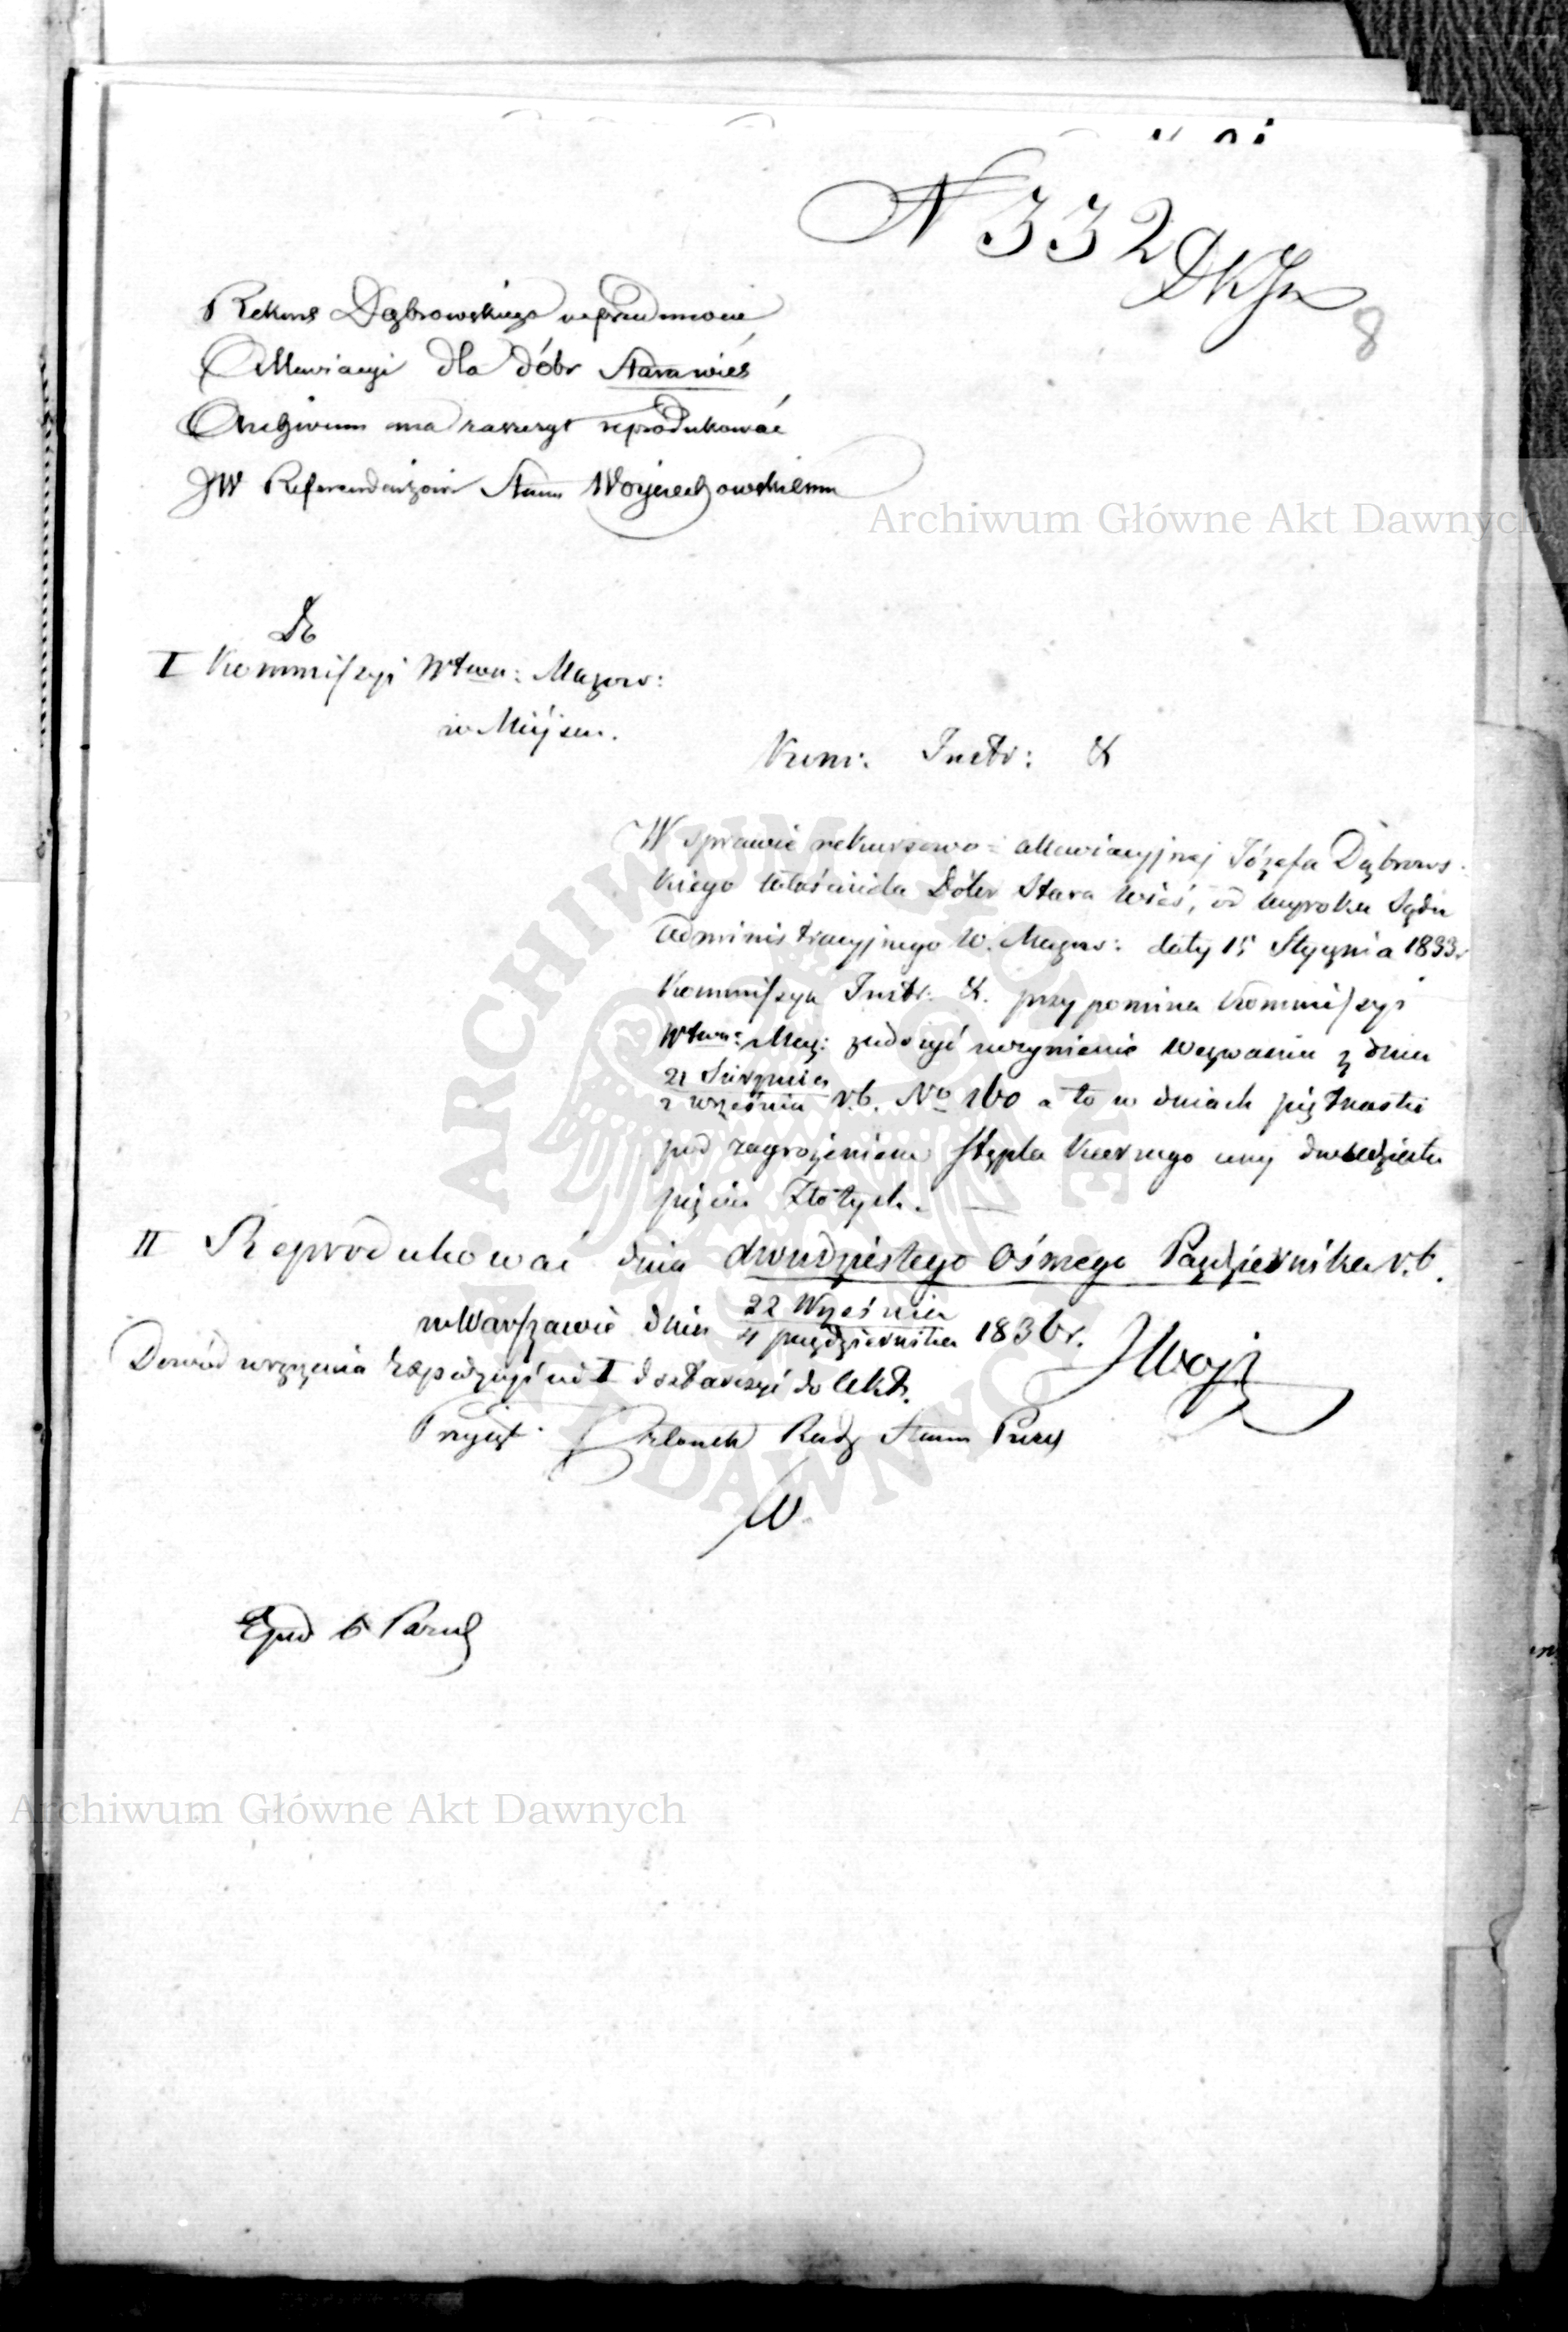 N 332
DKJn
8
Rekurs Dąbrowskiego w przedmiocie
Alluwiacyi dla dóbr Stara wieś
Archiwum ma zaraz reprodukować
JW Referendarzowi Stanu Wojciechowskiemu
Archiwum Główne Akt Dawnych
Do
I Kommissyi Wtwa: Mazow:
w Miejscu.
Kom: Instr: &
W sprawie rekursowo=alluwiacyjnej Józefa Dąbrows-
kiego właściciela Dóbr Stara Wieś, od wyroku Sądu
Administracyjnego W. Mazow: daty 15 Stycznia 1833r
Kommissya Instr: &. przypomina Kommissyi
Wtwa: Maz: zadosyć uczynienie wezwaniu z dnia
21 Sierpnia
2 września r.b. No 160 a to w dniach piętnastu
pod zagrożeniem stępla karnego ceny dwudziestu
pięciu Złotych.
II Reprodukować dnia dwudziestego Ośmego Października r.b.
w Warszawie dnia 22 Września
4 października 1836r.
Dowód wręczenia Expedycyi ad I dostarczyć do Akt.
JWojc
Przyjął Członek Rady Stanu Prezy
W.
Archiwum Główne Akt Dawnych
ARCHIWUM GŁÓWNE AKT DAWNYCH